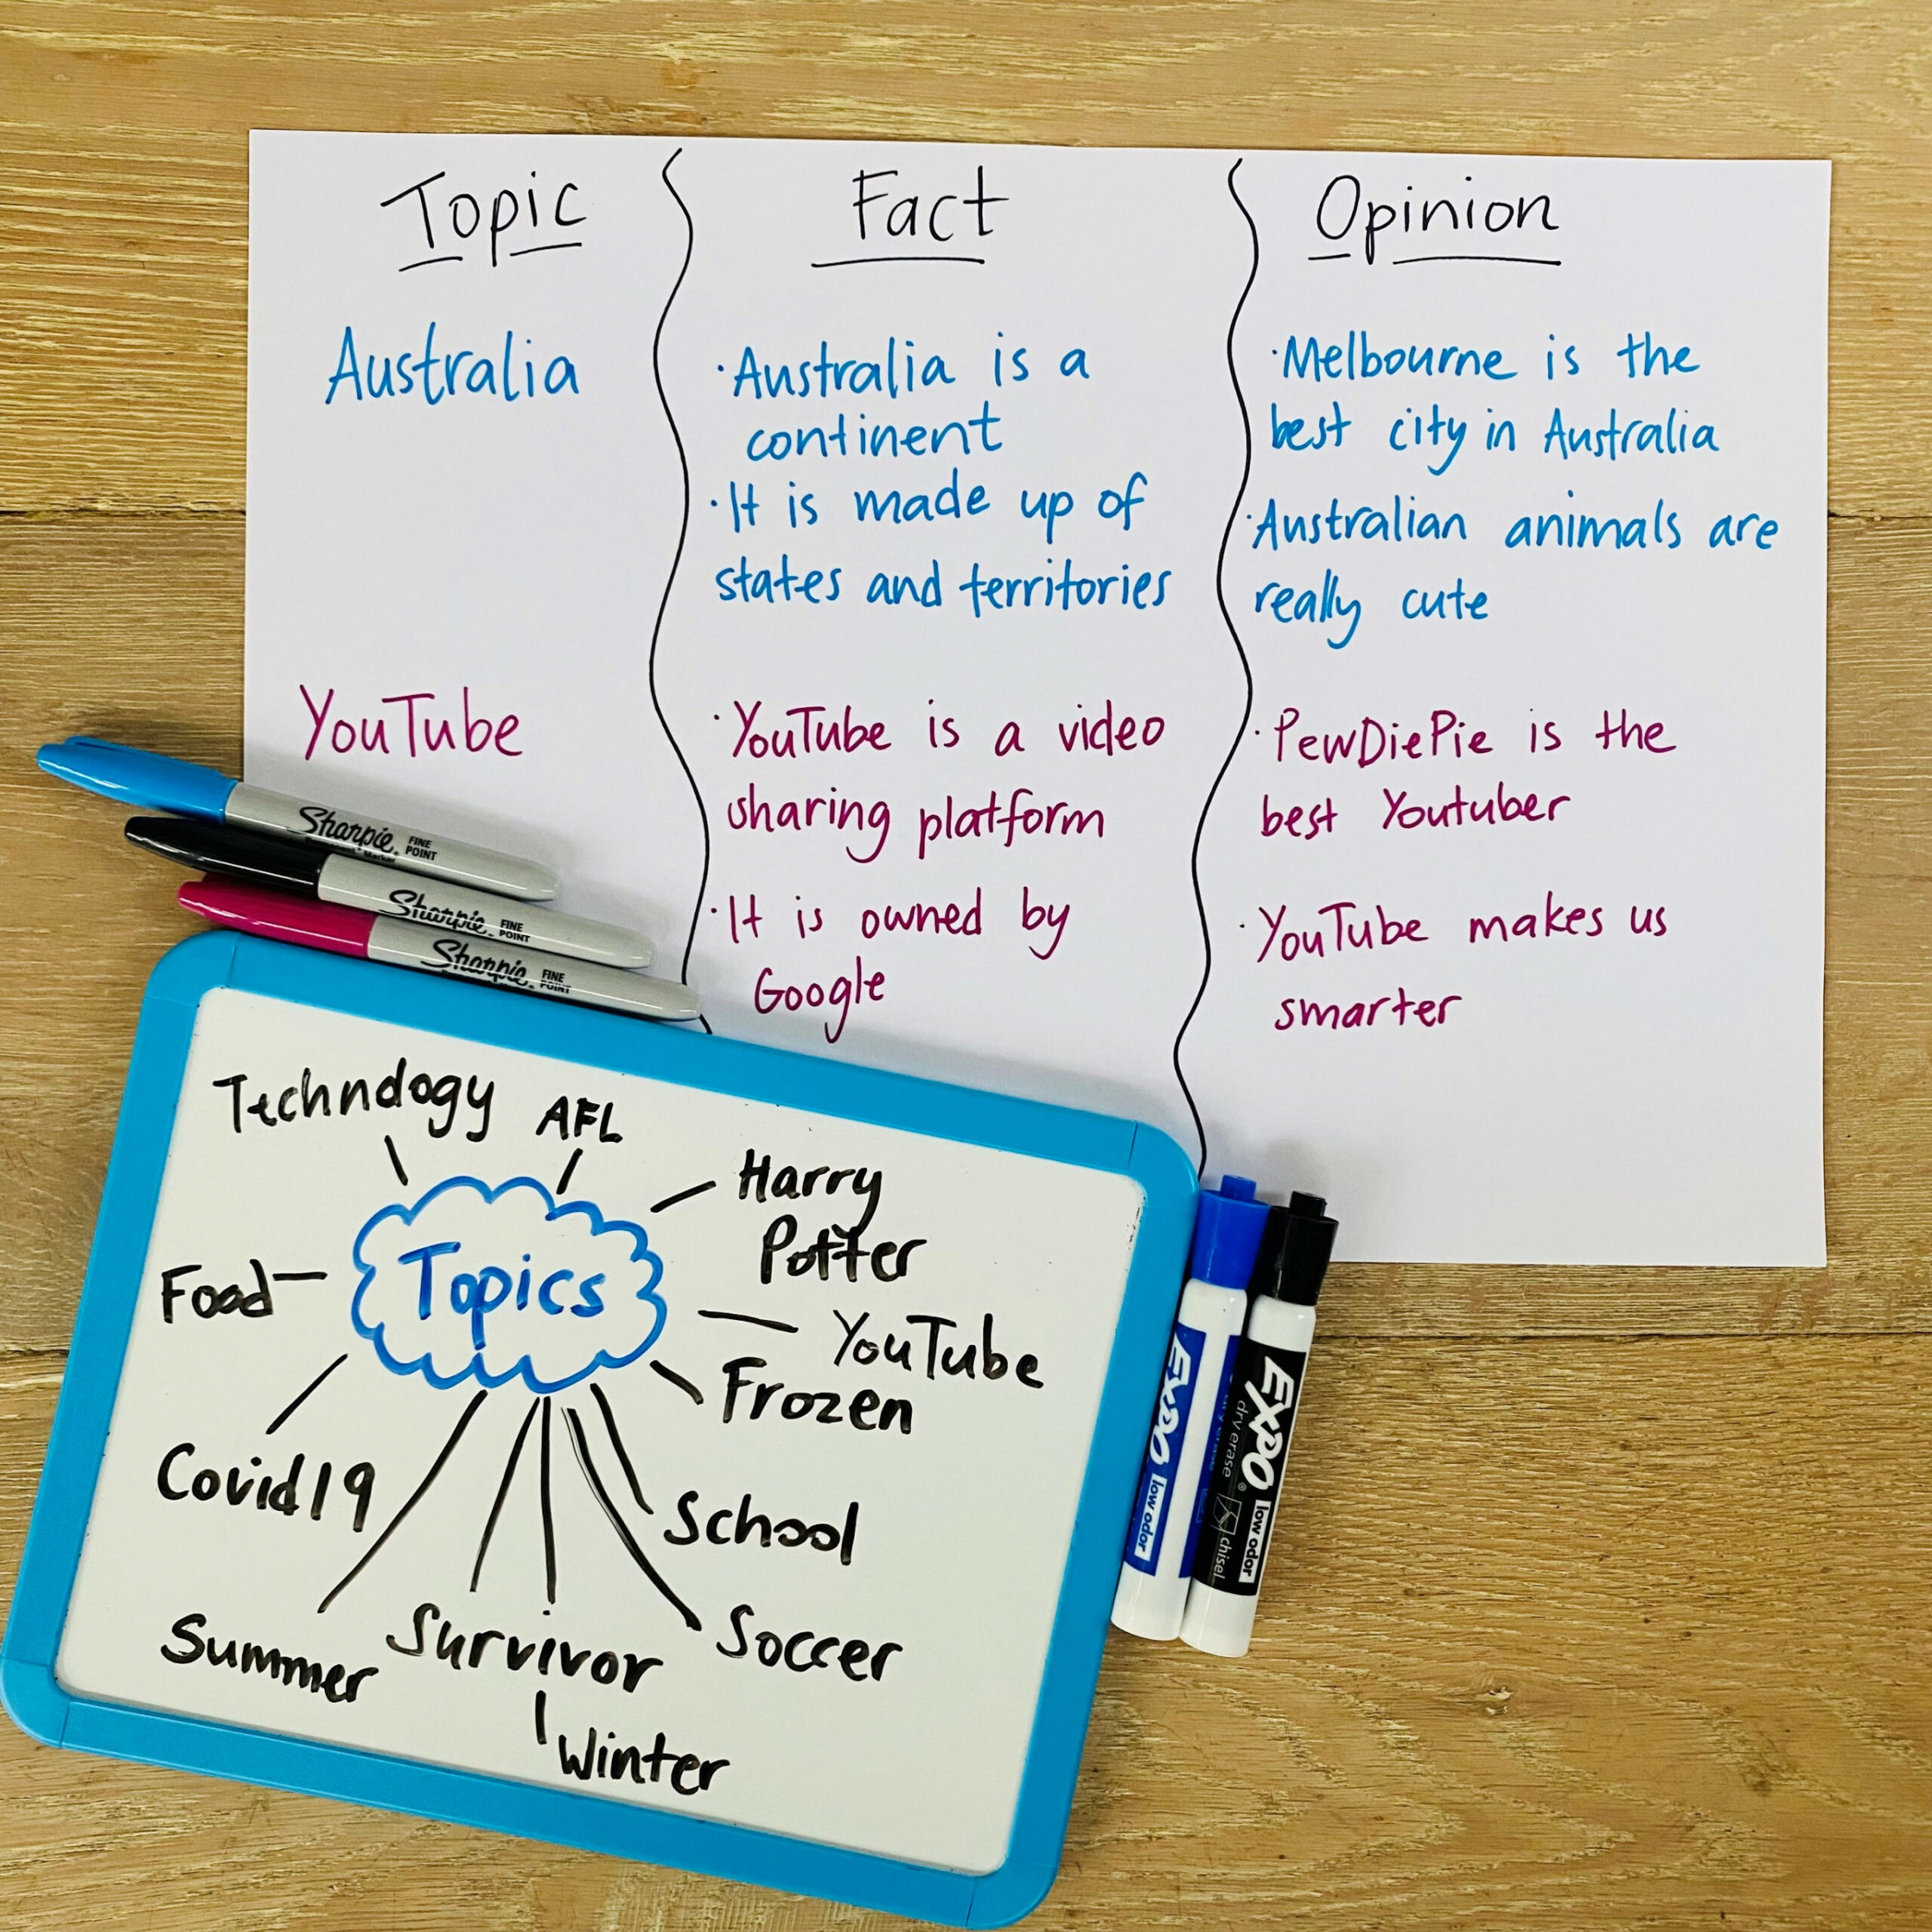 Topic
Fact
Opinion
Australia
·Australia is a
continent
·It is made up of
states and territories
·Melbourne is the
best city in Australia
·Australian animals are
really cute
YouTube
·YouTube is a video
sharing platform
·It is owned by
Google
·PewDiePie is the
best Youtuber
·YouTube makes us
smarter
Sharpie. FINE
POINT
Permanent Marker
Sharpie. FINE
POINT
Sharpie. FINE
POINT
Technology
AFL
Harry
Potter
Food
Topics
YouTube
Frozen
Covid19
School
Summer
Survivor
Soccer
Winter
EXPO
low odor
EXPO®
dry erase
low odor
chisel